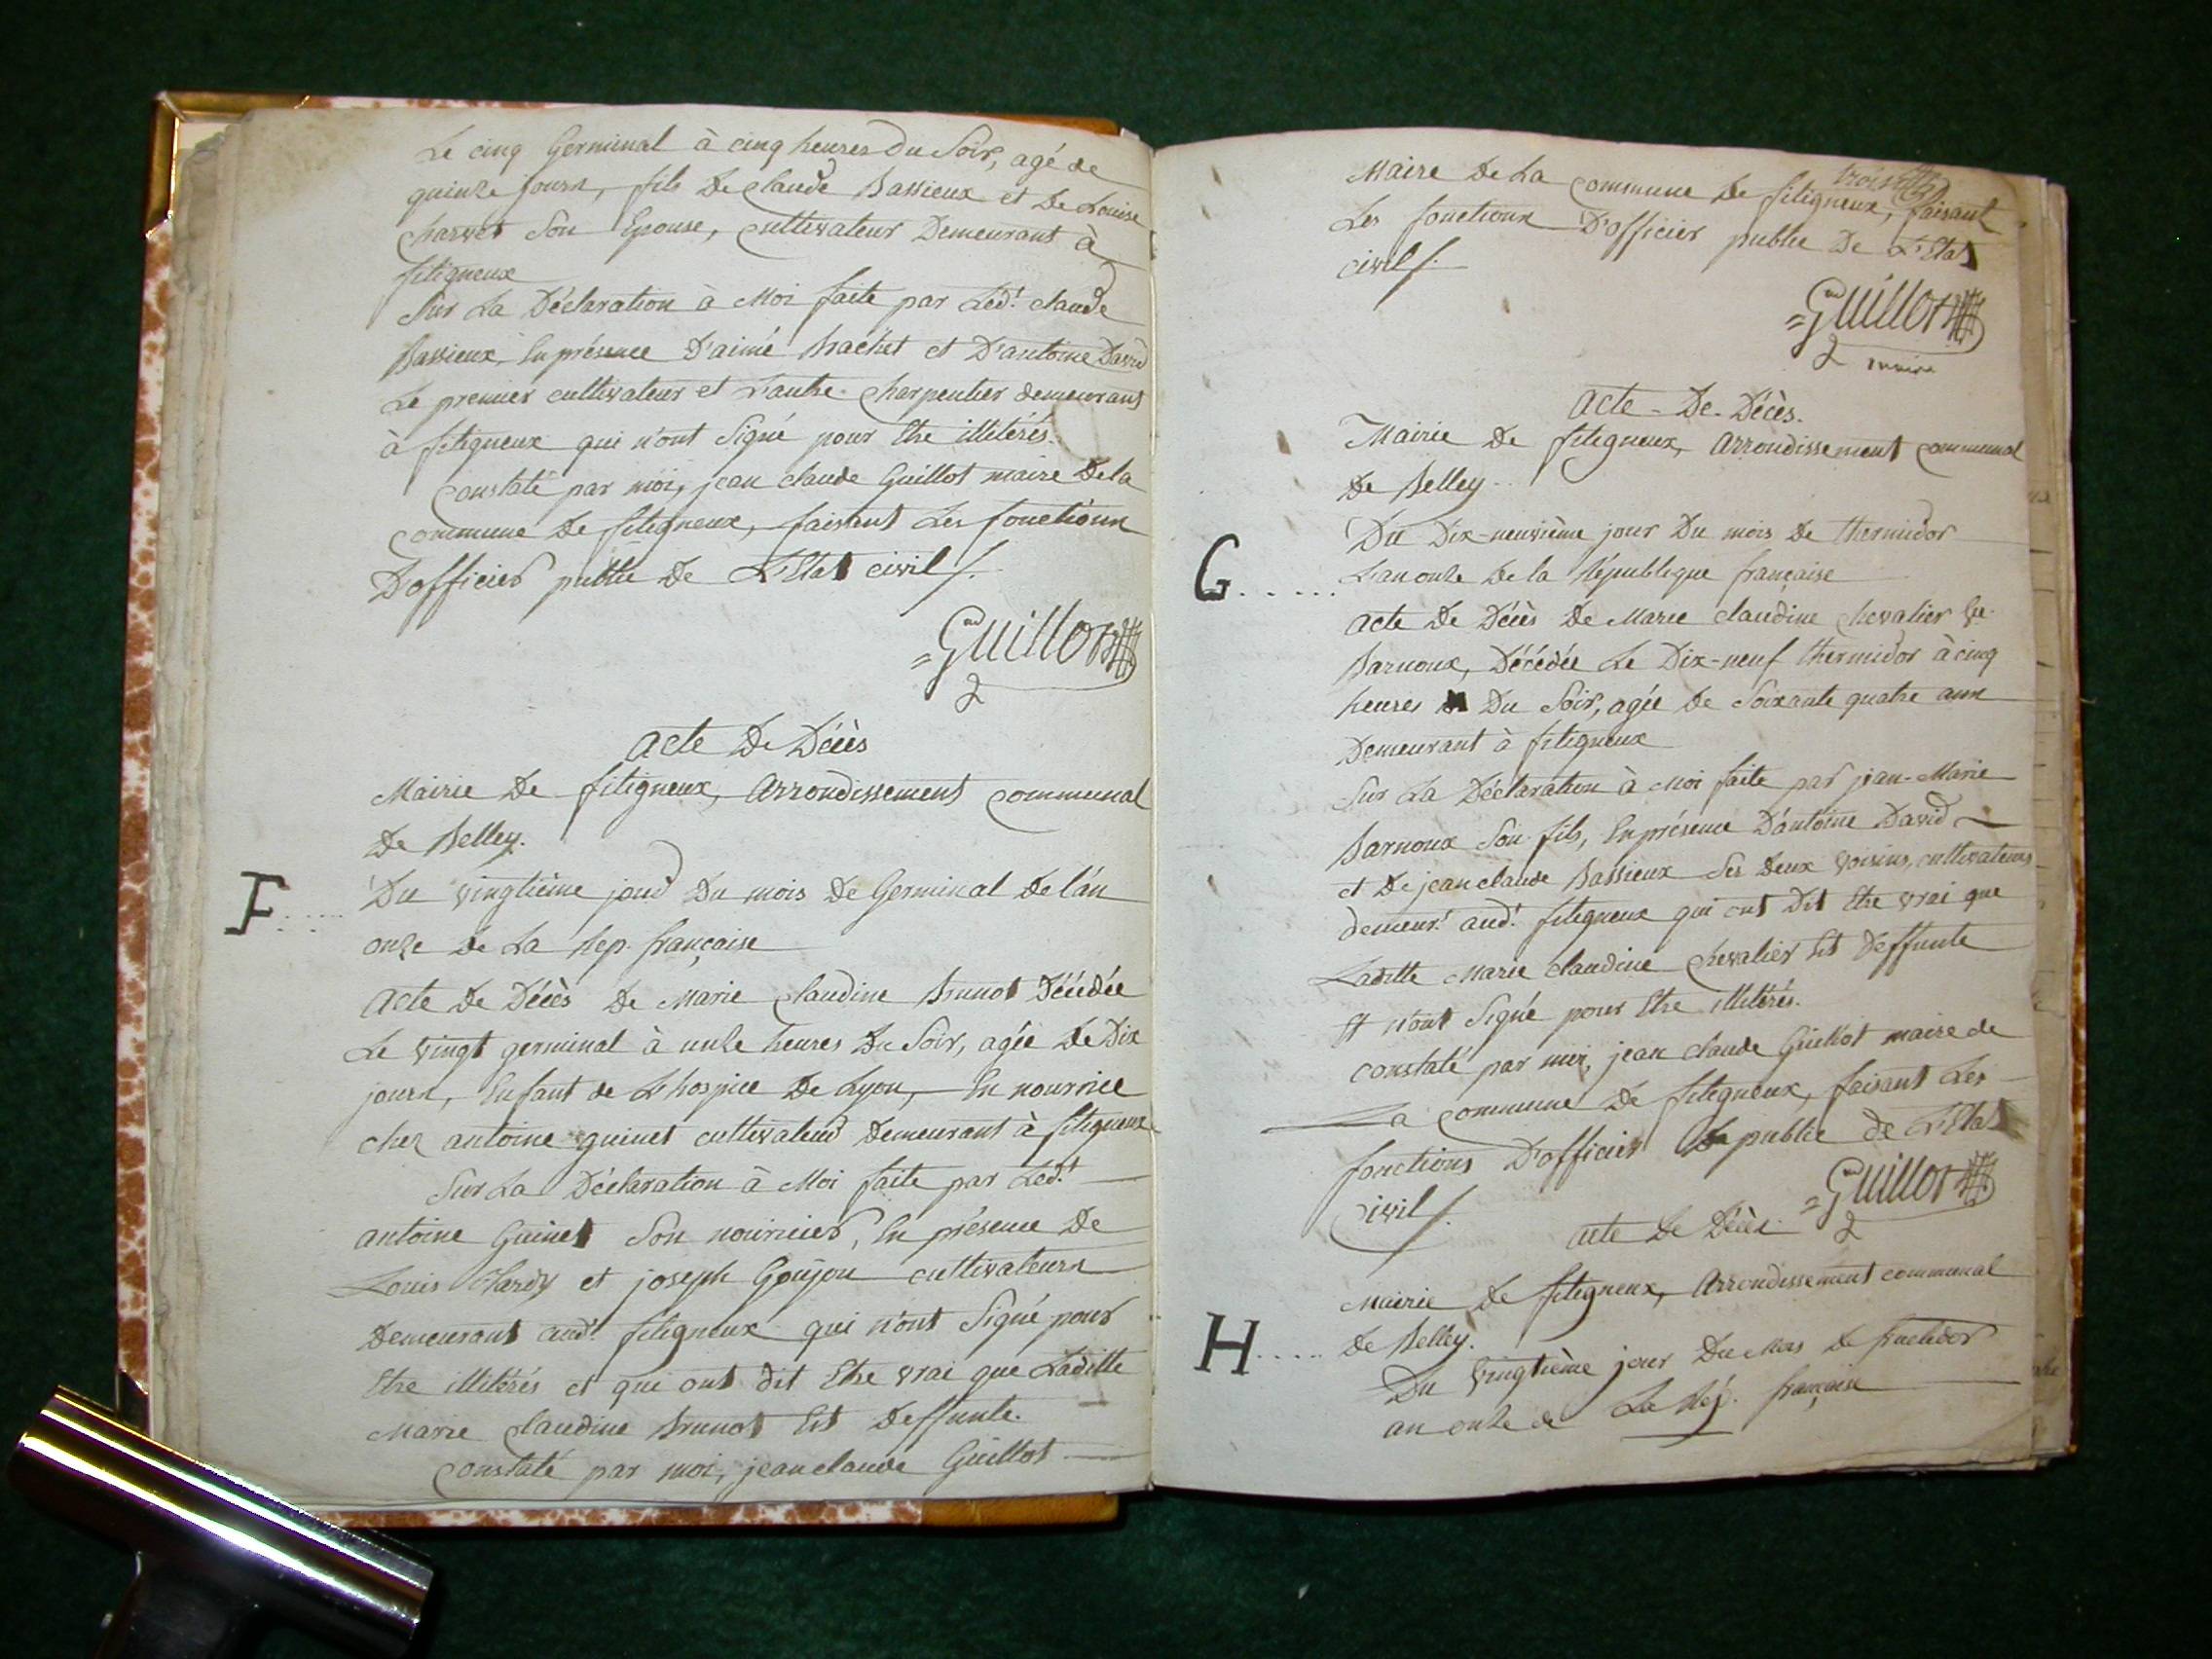 Le cinq Germinal à cinq heures Du Soir, agé de
quinze jours, fils De Claude Bassieux et De Louise
charvet Son Epouse, cultivateur Demeurant à
fitigneux
Sur La Déclaration à Moi faite par Led.t claude
Bassieux, En présence D'aimé Brachet et D'antoine David
Le premier cultivateur et L'autre charpentier demeurans
à fitigneux qui n'ont Signé pour Etre illitérés.
constaté par moi, jean claude Guillot maire De la
commune De fitigneux, faisant Les fonctions
D'officier public De L'Etat civil /.
=Guillot
Acte De Décès
Mairie De fitigneux, Arrondissement communal
De Belley.
F..... Du vingtième jour Du mois De Germinal De l'an
onze De La Rep. française
Acte De Décès De Marie claudine Brunot Décédée
Le vingt germinal à onze heures Du Soir, agée De Dix
jours, Enfant de L'hospice De Lyon, En nourrice
chez antoine guinet cultivateur Demeurant à fitigneux
Sur La Déclaration à Moi faite par Led.t
antoine Guinet Son nourricier, En présence De
Louis Hardy et joseph Goujon cultivateurs
Demeurant aud.t fitigneux qui n'ont Signé pour
Etre illitérés et qui ont dit Etre vrai que Laditte
Marie claudine Brunot Est Deffunte.
constaté par moi, jean claude Guillot
Maire De La commune De fitigneux, faisant
Les fonctions D'officier public De L'Etat
civil /.
=Guillot
maire
Acte De Décès.
Mairie De fitigneux, Arrondissement communal
De Belley
G...... Du Dix-neuvième jour Du mois De thermidor
L'an onze De la République française
Acte De Décès De Marie claudine chevalier Ve.
Barnoux, Décédée Le Dix-neuf thermidor à cinq
heures Du Soir, agée De Soixante quatre ans
Demeurant à fitigneux
Sur La Déclaration à Moi faite par jean-Marie
Barnoux Son fils, En présence D'antoine David
et De jean claude Bassieux Ses Deux voisins, cultivateurs
demeur.t aud.t fitigneux qui ont Dit Etre vrai que
Laditte Marie claudine chevalier Est Deffunte
Et n'ont Signé pour Etre illitérés.
constaté par moi, jean claude Guillot maire de
La commune De fitigneux, faisant Les
fonctions D'officier public de L'Etat
civil /.
=Guillot
Acte De Décès.
Mairie De fitigneux, Arrondissement communal
De Belley.
H..... Du vingtième jour Du Mois De fructidor
an onze de La Rép. française